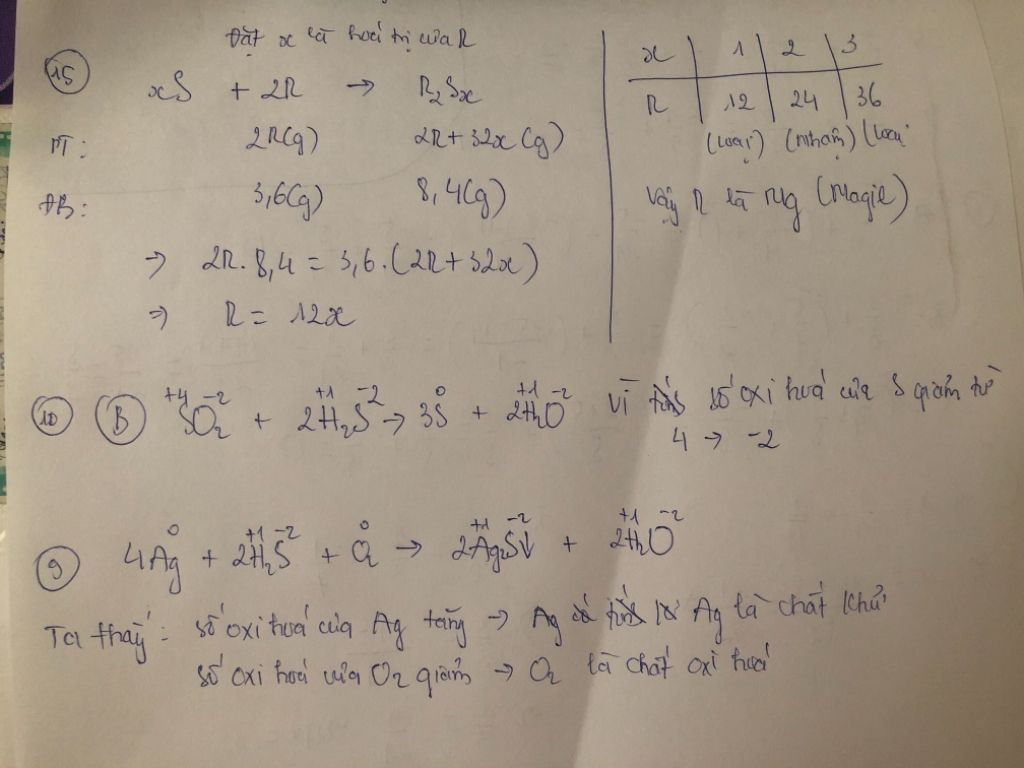 Đặt x là hoá trị của R
15 xS + 2R → R₂Sx
PT: 2R(g) 2R+32x (g)
ĐB: 3,6(g) 8,4(g)
⇒ 2R.8,4 = 3,6.(2R+32x)
⇒ R = 12x
x 1 2 3
R 12 24 36
(loại) (nhận) (loại
Vậy R là Mg (Magie)
10 B +4 -2 +1 -2 0 +1 -2
SO₂ + 2H₂S → 3S + 2H₂O Vì số oxi hoá của S giảm từ
4 → -2
0 +1 -2 0 +1 -2 +1 -2
9 4Ag + 2H₂S + O₂ → 2Ag₂S↓ + 2H₂O
Ta thấy: số oxi hoá của Ag tăng → Ag là chất khử
số oxi hoá của O₂ giảm → O₂ là chất oxi hoá